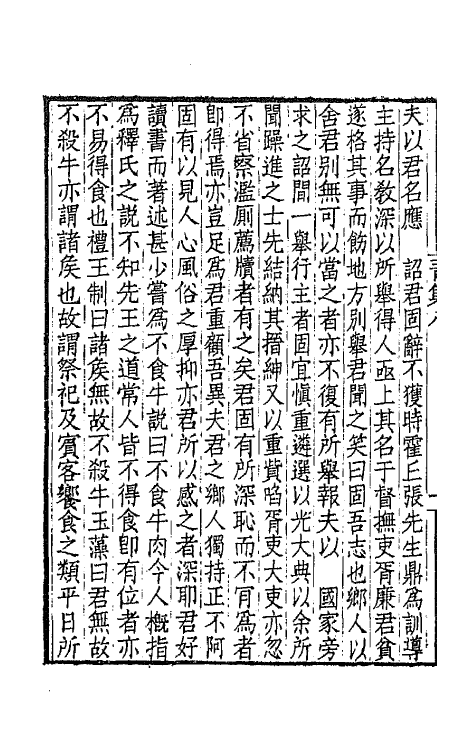 夫以君名應　詔君固辭不獲時霍丘張先生鼎為訓導
主持名教深以所舉得人亟上其名于督撫吏胥廉君貧
遂格其事而飭地方別舉君聞之笑曰固吾志也鄉人以
舍君別無可以當之者亦不復有所舉報夫以　國家旁
求之詔間一舉行主者固宜慎重遴選以光大典以余所
聞躁進之士先結納其搢紳又以重貲啗胥吏大吏亦忽
不省察濫厠薦牘者有之矣君固有所深恥而不肎為者
卽得焉亦豈足為君重顧吾異夫君之鄉人獨持正不阿
固有以見人心風俗之厚抑亦君所以感之者深耶君好
讀書而著述甚少嘗為不食牛説曰不食牛肉今人概指
為釋氏之説不知先王之道常人皆不得食卽有位者亦
不易得食也禮王制曰諸矦無故不殺牛玉藻曰君無故
不殺牛亦謂諸矦也故謂祭祀及賓客饗食之類平日所